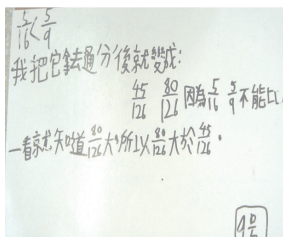 5/16 < 5/9
我把它拿去通分後就變成:
45/126 80/126 因為 5/16 5/9 不能比
一看就知道 80/126 大，所以 80/126 大於 45/126。